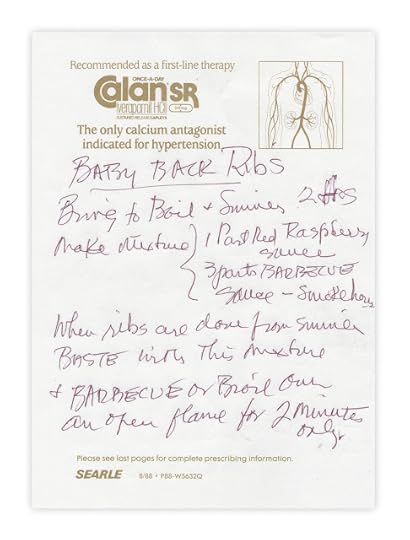 Recommended as a first-line therapy
ONCE-A-DAY
Calan SR
(verapamil HCl)
240mg
SUSTAINED-RELEASE CAPLETS
The only calcium antagonist
indicated for hypertension
BABY BACK Ribs
Bring to Boil + Simmer 2 Hrs
Make Mixture { 1 Part Red Raspberry
Sauce
3 parts BARBECUE
Sauce - Smokehouse
When ribs are done from simmer
BASTE with This Mixture
+ BARBECUE or Broil Over
an open flame for 2 Minutes
only
Please see last pages for complete prescribing information.
SEARLE 8/88 • P88-W5632Q